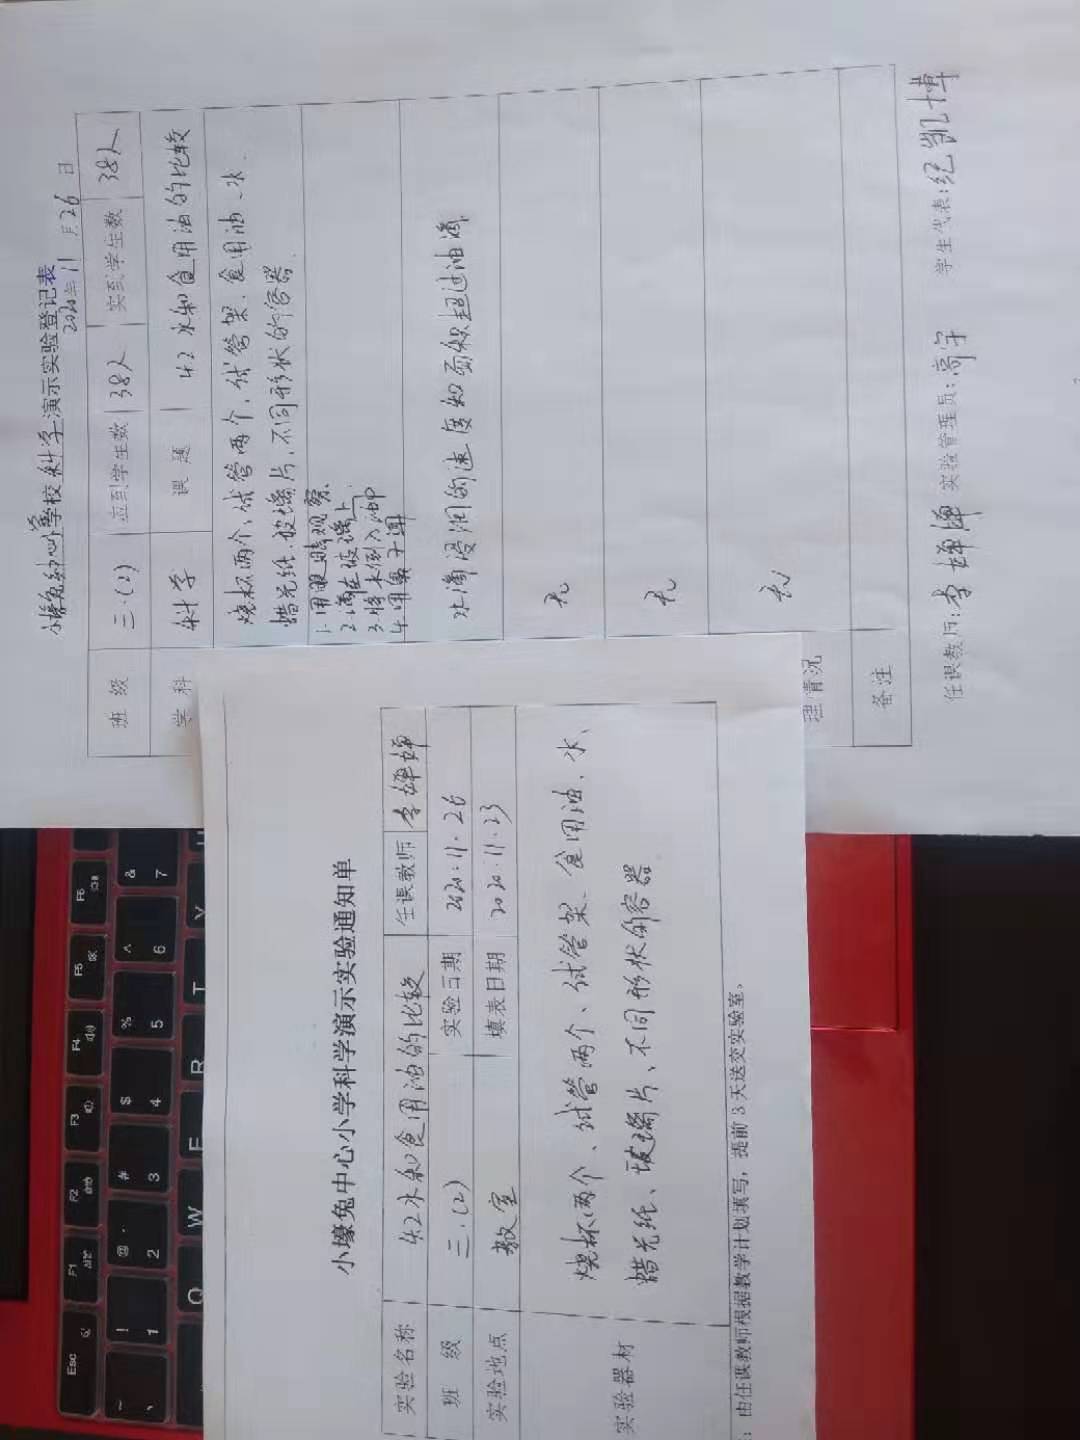 小壕兔中心小学校科学演示实验登记表
2020年11月26日
班级 三.(2) 应到学生数 38人 实到学生数 38人
学科 科学 课题 4.2水和食用油的比较
烧杯两个、试管两个、试管架、食用油、水、
蜡光纸、玻璃片、不同形状的容器
1.用眼睛观察
2.滴在玻璃上
3.将水倒入油中
4.用鼻子闻
水滴浸润的速度和面积超过油滴
无
无
理情况 无
备注
任课教师: 李婵婵 实验管理员: 高宇 学生代表: 纪凯博
小壕兔中心小学科学演示实验通知单
实验名称 4.2水和食用油的比较 任课教师 李婵婵
班级 三.(2) 实验日期 2020.11.26
实验地点 教室 填表日期 2020.11.23
实验器材
烧杯两个、试管两个、试管架、食用油、水、
蜡光纸、玻璃片、不同形状的容器
:由任课教师根据教学计划填写,提前3天送交实验室。
Esc F1 F2 F3 F4 F5 F6
! @ # $ % ^ &
1 2 3 4 5 6 7
Q W E R T Y